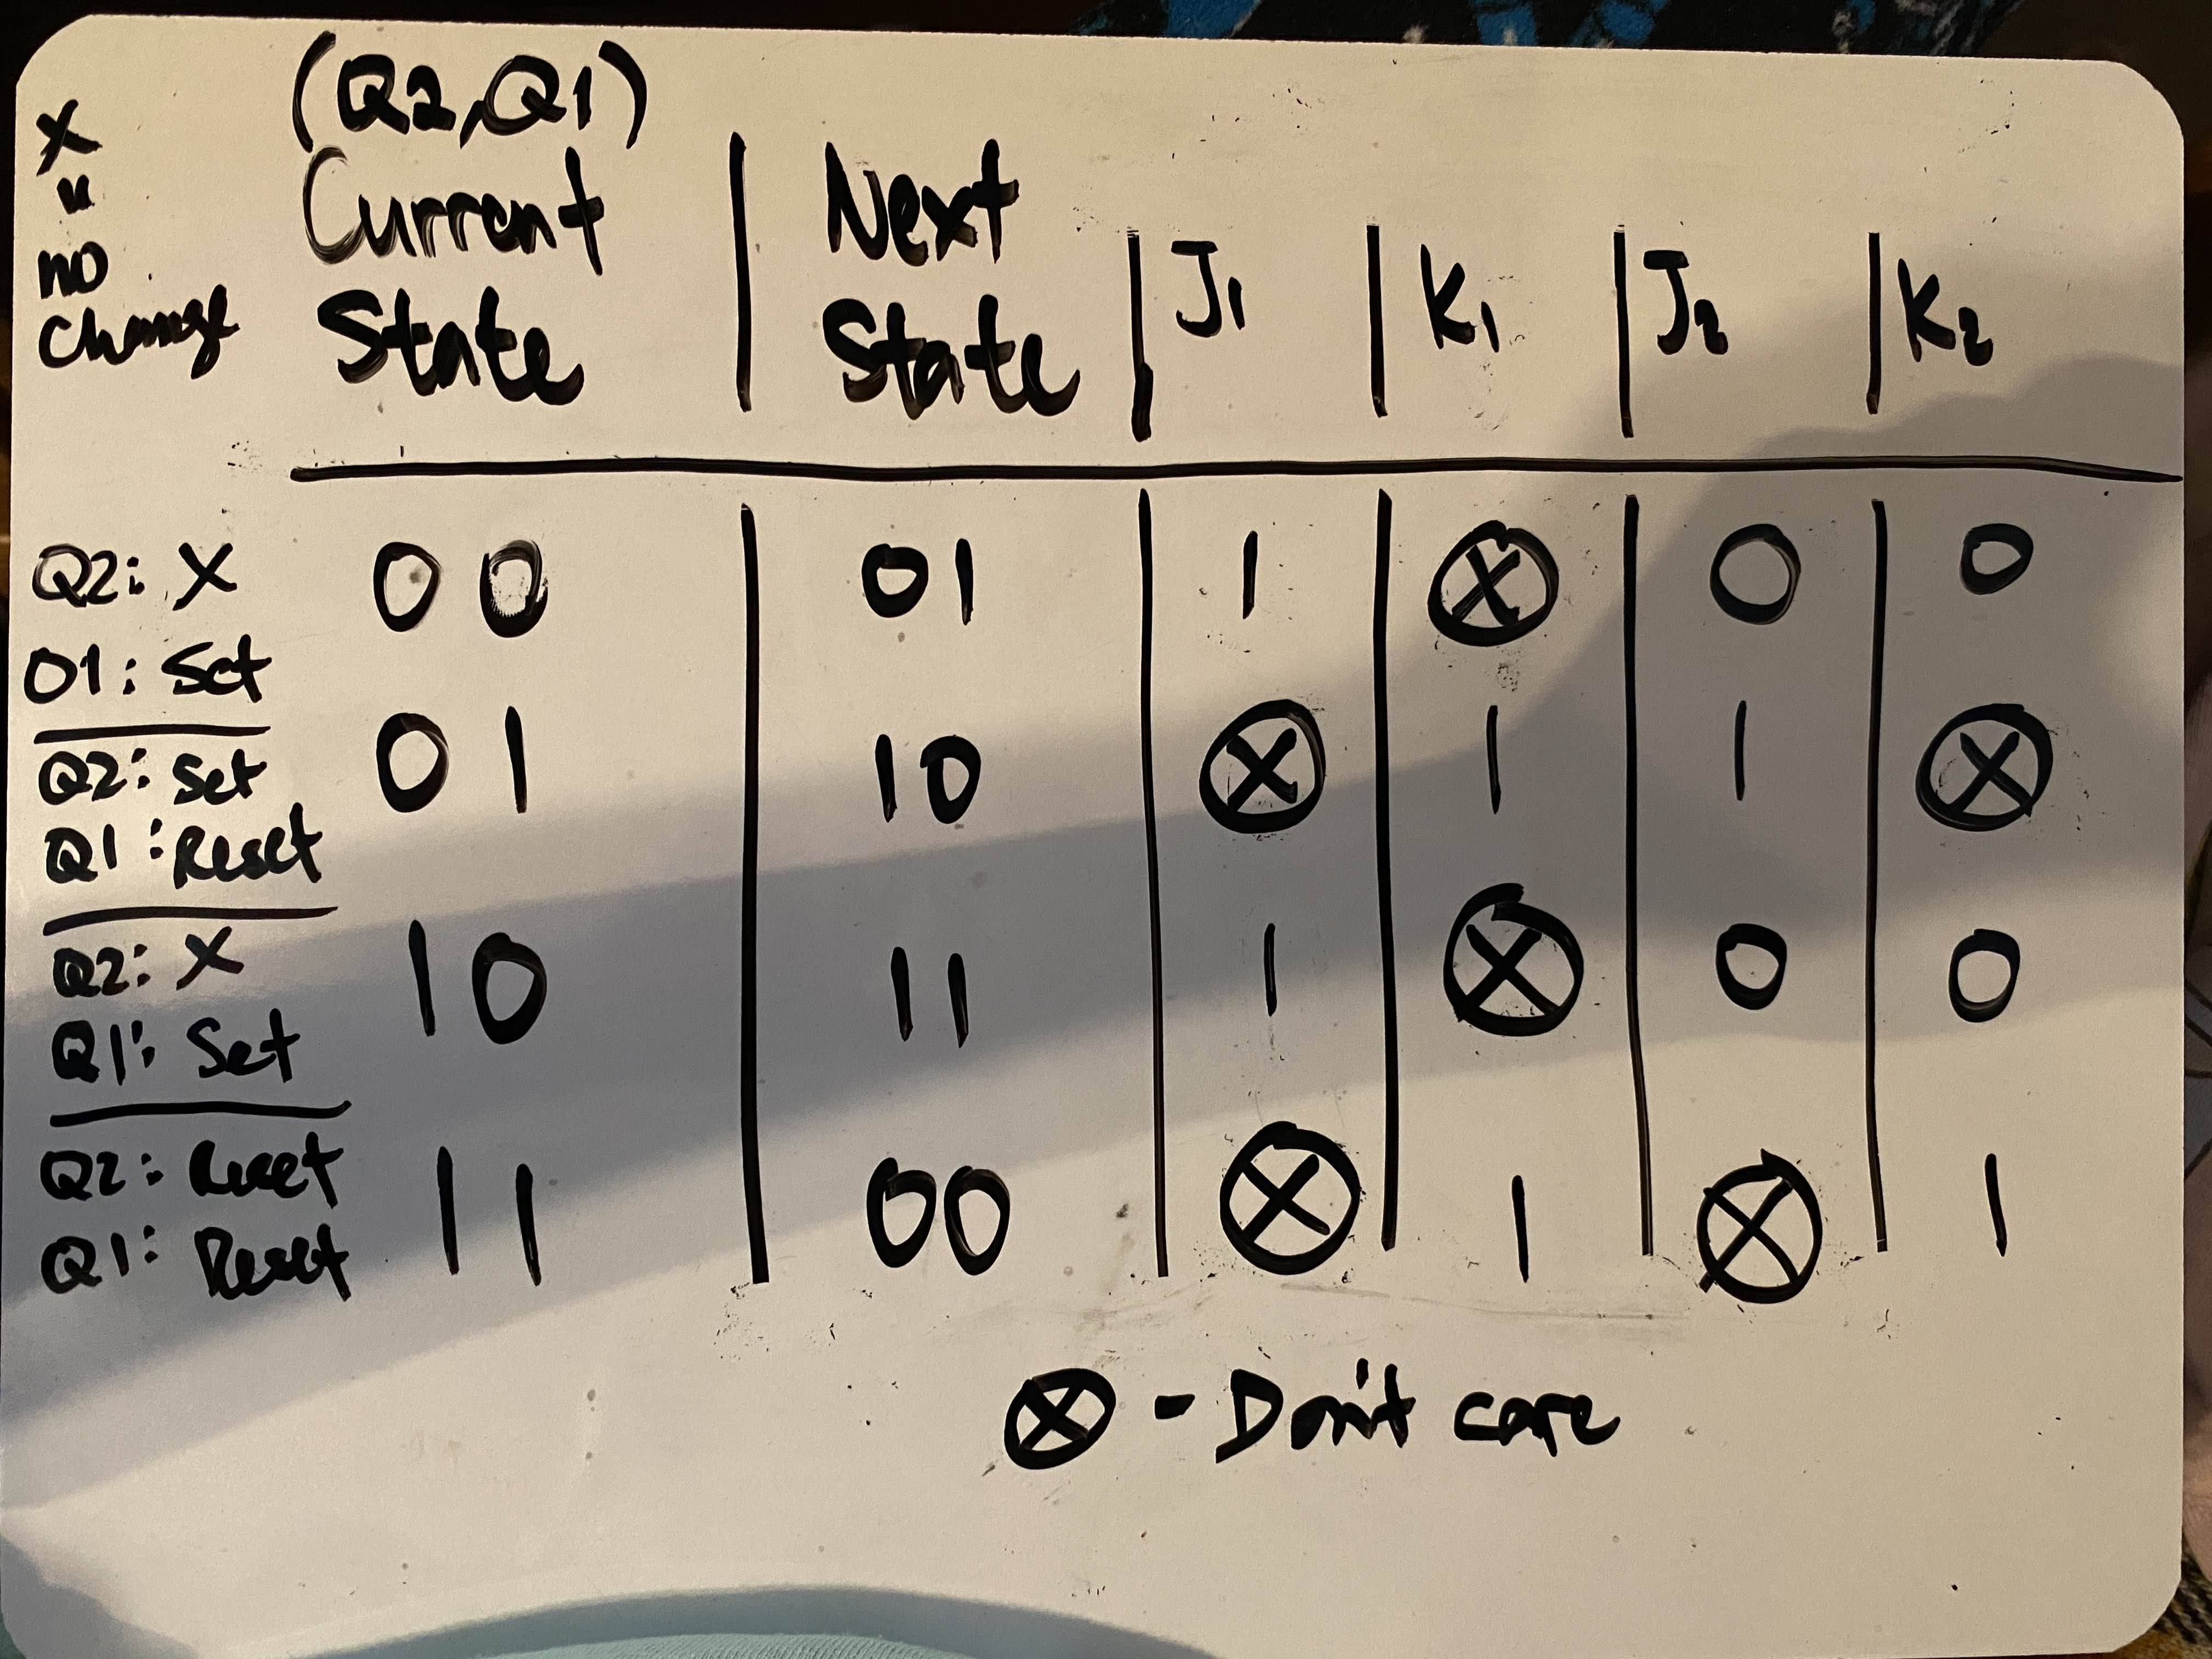 X
"
no
change
(Q2,Q1)
Current State | Next State | J1 | K1 | J2 | K2
Q2: X
Q1: Set
00 | 01 | 1 | ⊗ | 0 | 0
Q2: Set
Q1: Reset
01 | 10 | ⊗ | 1 | 1 | ⊗
Q2: X
Q1: Set
10 | 11 | 1 | ⊗ | 0 | 0
Q2: Reset
Q1: Reset
11 | 00 | ⊗ | 1 | ⊗ | 1
⊗ - Don't care